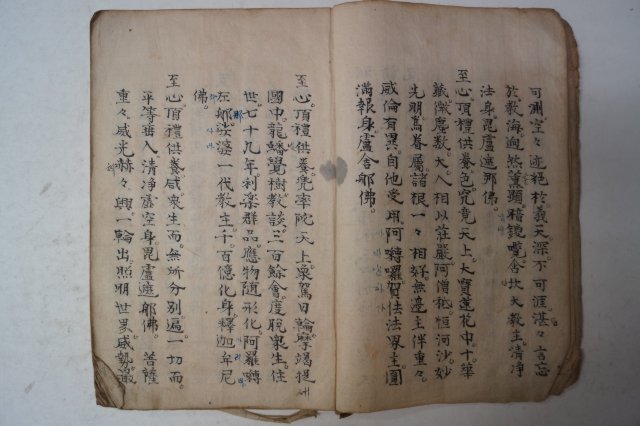 可測空々迹絶於義天深不可涯湛々言忘
於教海逈然薰顯精鏡覽舍坎大教主清淨
法身毘盧遮那佛
至心頂禮供養色究竟天上大寶蓮花中十華
藏微塵數大人相以莊嚴阿僧祗恒河沙妙
光明爲眷屬諸根一々相好無邊主伴重々
感倫有異自他受用阿轉囉賀佉法界主圓
滿報身盧舍那佛
至心頂禮供養兜率陀天上象駕日輪摩竭提
國中龍蟠覺樹教談三百餘會度脫衆生住
世七十九年利樂群品應物隨形化阿羅轉
左那娑婆一代教主千百億化身釋迦牟尼
佛
至心頂禮供養咸衆生而無所分別遍一切而
平等普入清淨虛空身毘盧遮那佛 菩薩
重々威光赫々興一輪出照明世界感勢